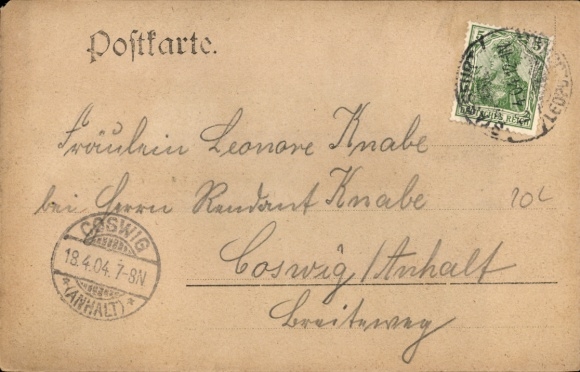 Postkarte.
5 5
DEUTSCHES REICH
Fräulein Leonore Knabe
bei Herrn Rendant Knabe
20L
Coswig/Anhalt
Breiteweg
COSWIG
18.4.04. 7-8N
*(ANHALT)*